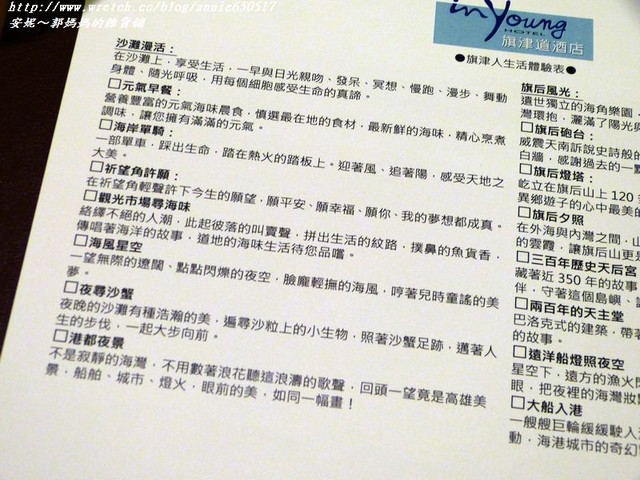 http://www.wretch.cc/blog/annie650517
安妮~郭媽媽的雜貨舖
in Young
HOTEL
旗津道酒店
●旗津人生活體驗表●
沙灘漫活：
在沙灘上，享受生活，一早與日光親吻、發呆、冥想、慢跑、漫步、舞動
身體、隨光呼吸，用每個細胞感受生命的真諦。
□元氣早餐：
營養豐富的元氣海味晨食，慎選最在地的食材，最新鮮的海味，精心烹煮
調味，讓您擁有滿滿的元氣。
□海岸單騎：
一部單車，踩出生命，踏在熱火的踏板上。迎著風、追著陽，感受天地之
大美。
□祈望角許願：
在祈望角輕聲許下今生的願望，願平安、願幸福、願你、我的夢想都成真。
□觀光市場尋海味
絡繹不絕的人潮，此起彼落的叫賣聲，拼出生活的紋路，撲鼻的魚貨香，
傳唱著海洋的故事，道地的海味生活待您品嚐。
□海風星空
一望無際的遼闊、點點閃爍的夜空，臉龐輕撫的海風，哼著兒時童謠的美
夢。
□夜尋沙蟹
夜晚的沙灘有種浩瀚的美，遍尋沙粒上的小生物，照著沙蟹足跡，邁著人
生的步伐，一起大步向前。
□港都夜景
不是寂靜的海灣，不用數著浪花聽這浪濤的歌聲，回頭一望竟是高雄美
景，船舶、城市、燈火，眼前的美，如同一幅畫！
旗后風光：
遠世獨立的海角樂園，
灣環抱，灑滿了陽光
□旗后砲台：
威震天南訴說史詩般的
白牆，感謝過去的一
□旗后燈塔：
屹立在旗后山上 120
異鄉遊子的心中最美的
□旗后夕照
在外海與內灣之間，山
的雲霞，讓旗后山更是
□三百年歷史天后宮
藏著近 350 年的故事
伴，守著這個島嶼、
□兩百年的天主堂
巴洛克式的建築，帶著
的故事。
□遠洋船燈照夜空
星空下，遠方的漁火閃
眼，把夜裡的海灣妝
□大船入港
一艘艘巨輪緩緩駛入
動，海港城市的奇幻